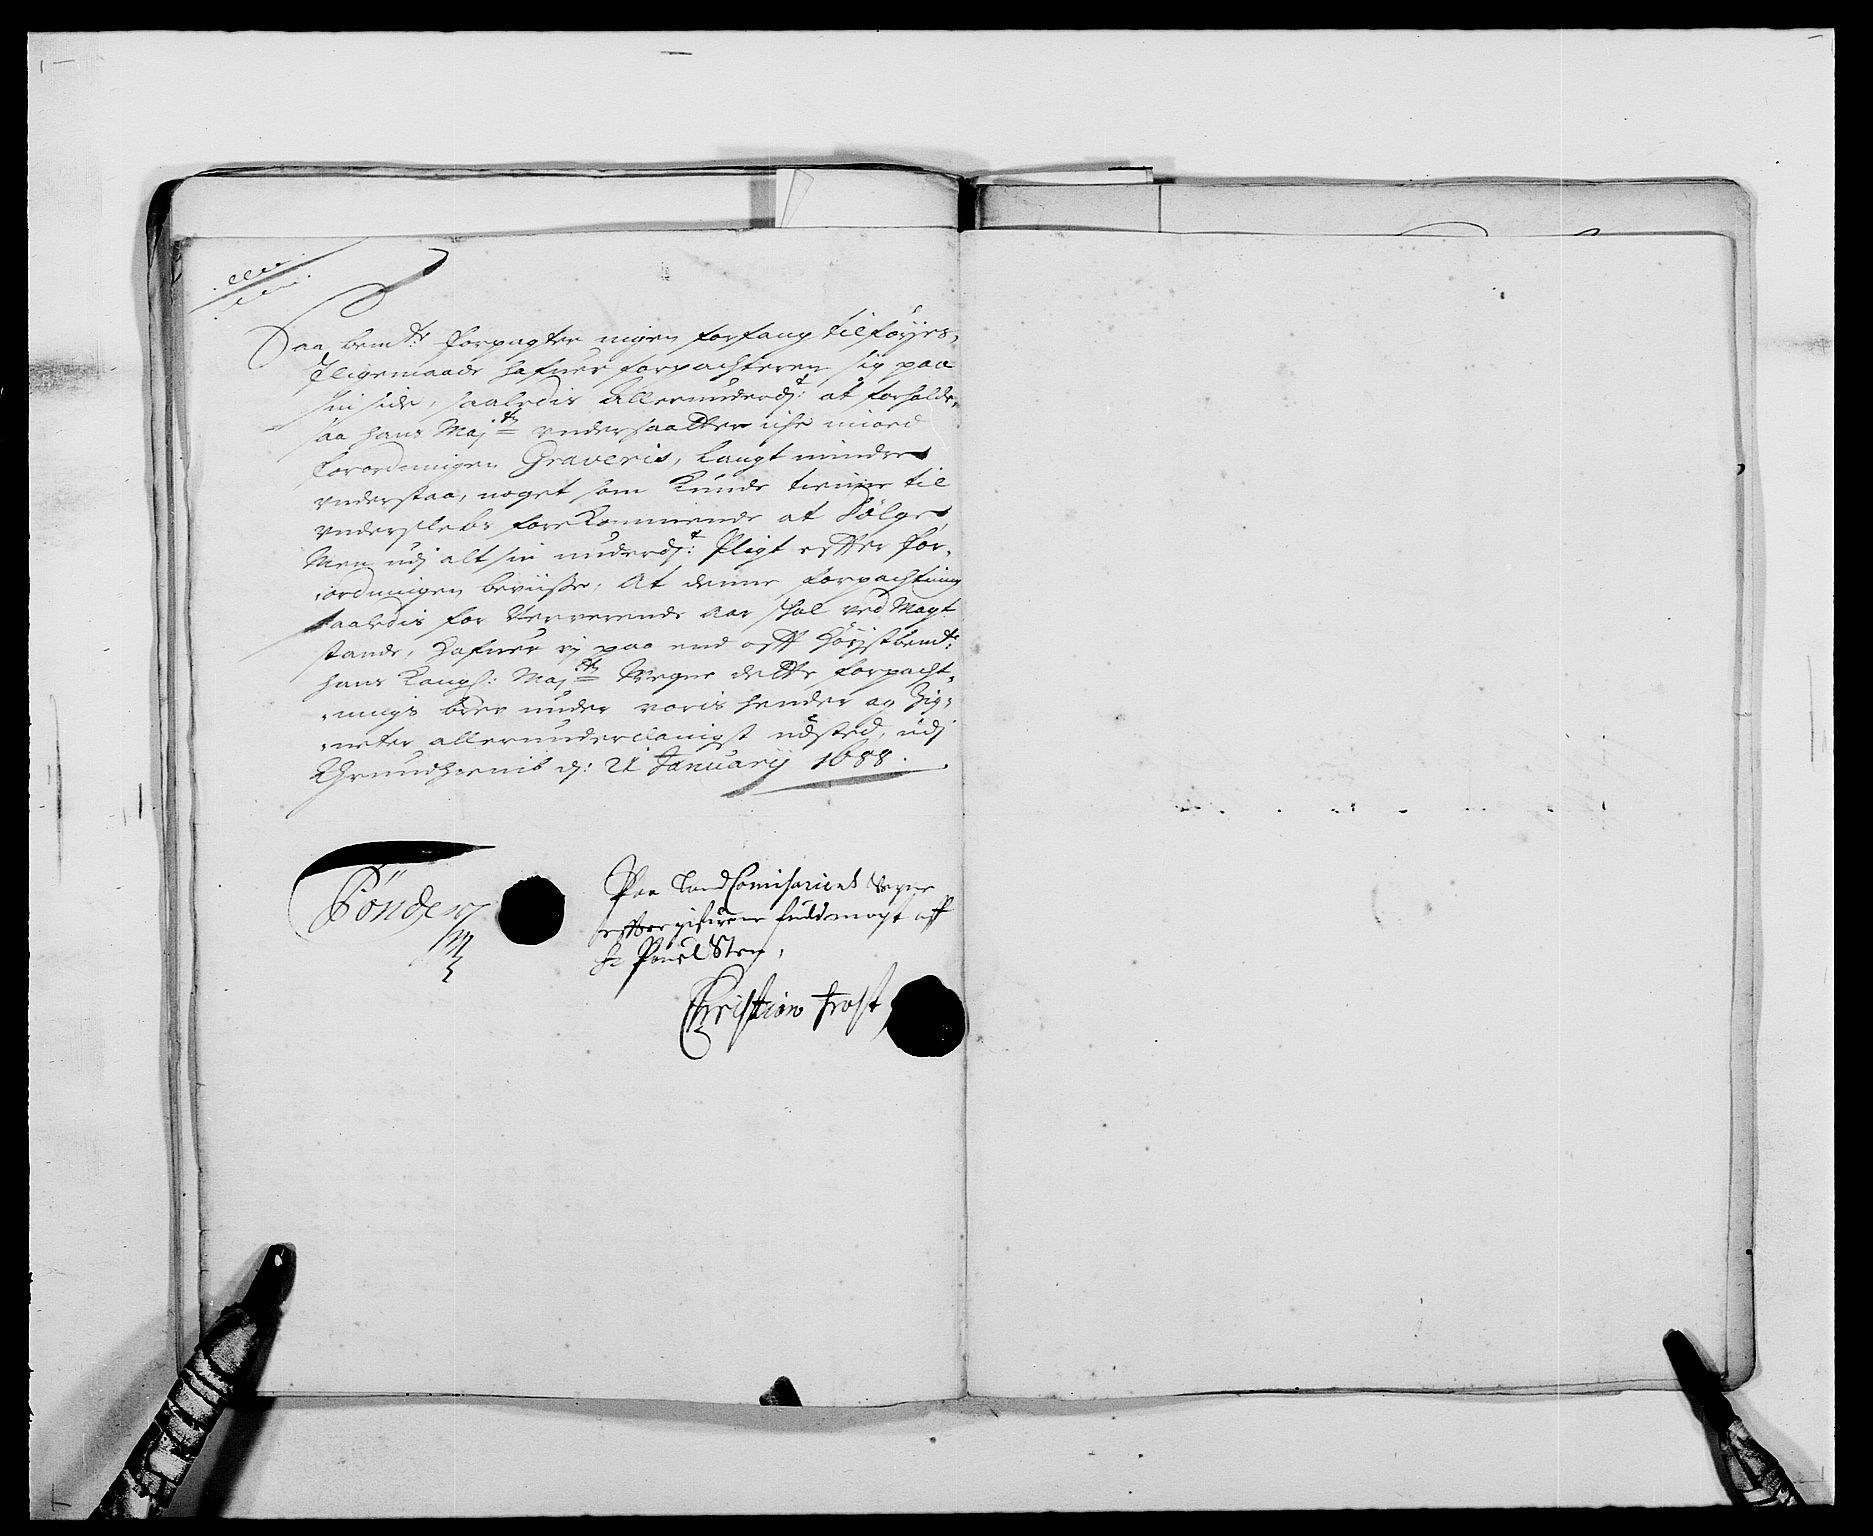 Saa bemte: forpagter ingen forfang tilføyes,
Iligemaade hafuer forpachteren sig paa
sin side, saaledis allerunderdt: at forholde,
saa hans Majts undersaatter icke imod
forordningen Graveris, langt mindre
understaa, noget som kunde tiene til
underslebs forekommende at følge,
Men udj alt sin underdt: Pligt efter for,
,ordningen beviisse, At denne forpachtning
saaledis for værende aar skal ved Magt
stande, hafuer vj paa end off høystbemte:
hans Kongl: Majts Wegne dette forpacht,
,nings brev under voris hender og Zig,
,neter allerunderdanigst udsted, udj
d: 21 January 1688.
Tönder
Paa LandComisariens Vegne
efter gifuene fuldmagt aff
Hr Pouel
Christian Frost